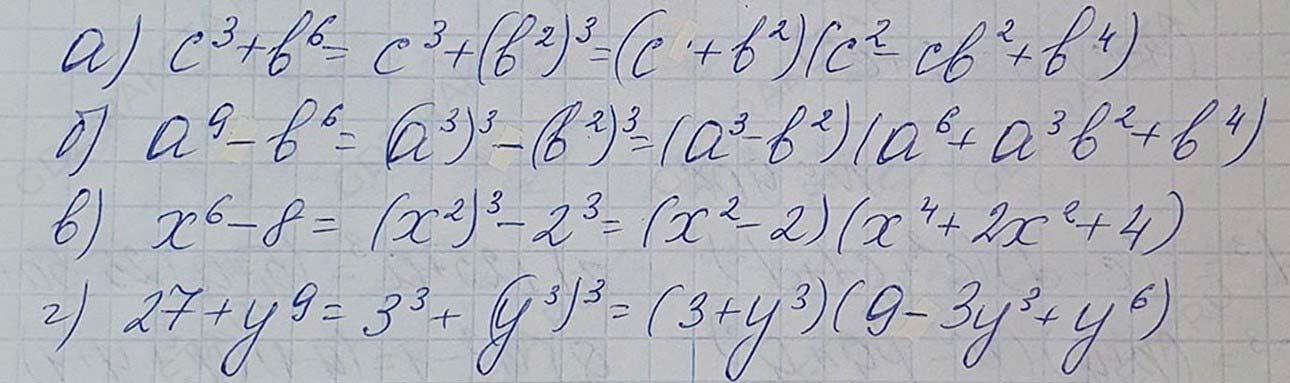 а) c³+b⁶= c³+(b²)³=(c+b²)(c²-cb²+b⁴)
б) a⁹-b⁶=(a³)³-(b²)³=(a³-b²)(a⁶+a³b²+b⁴)
в) x⁶-8=(x²)³-2³=(x²-2)(x⁴+2x²+4)
г) 27+y⁹=3³+(y³)³=(3+y³)(9-3y³+y⁶)